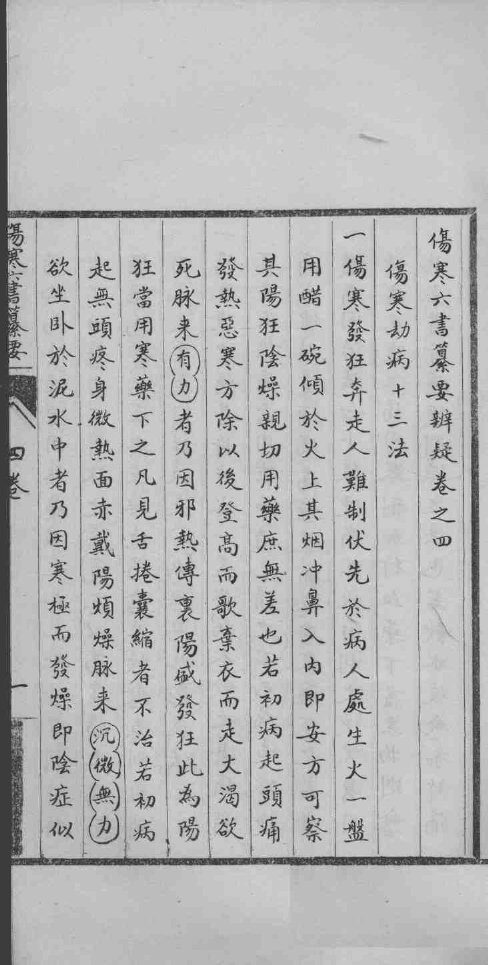 傷寒六書纂要辨疑卷之四
傷寒劫病十三法
一傷寒發狂奔走人難制伏先於病人處生火一盤
用醋一碗傾於火上其烟冲鼻入內即安方可察
其陽狂陰燥親切用藥庶無差也若初病起頭痛
發熱惡寒方除以後登高而歌棄衣而走大渴欲
死脉来有力者乃因邪熱傳裏陽盛發狂此為陽
狂當用寒藥下之凡見舌捲囊縮者不治若初病
起無頭疼身微熱面赤戴陽煩燥脉来沉微無力
欲坐卧於泥水中者乃因寒極而發燥即陰症似
傷寒六書纂要
四卷
一